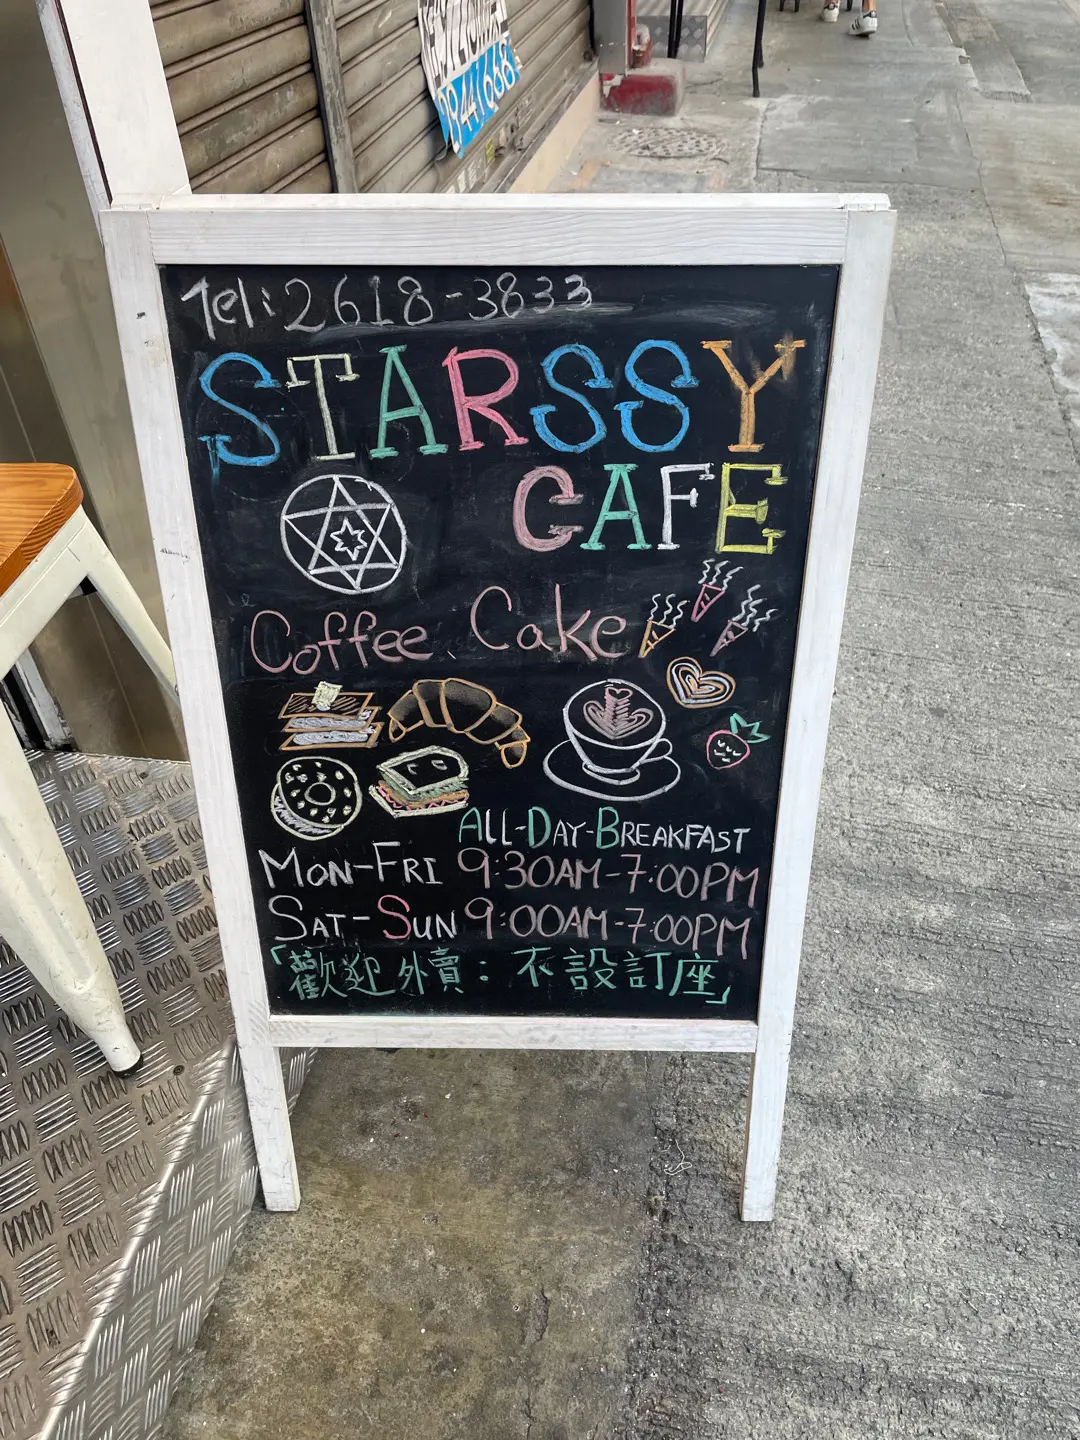 Tel: 2618-3833
STARSSY
CAFE
Coffee、Cake
ALL-DAY-BREAKFAST
MON-FRI 9:30AM-7:00PM
SAT-SUN 9:00AM-7:00PM
「歡迎外賣：不設訂座」